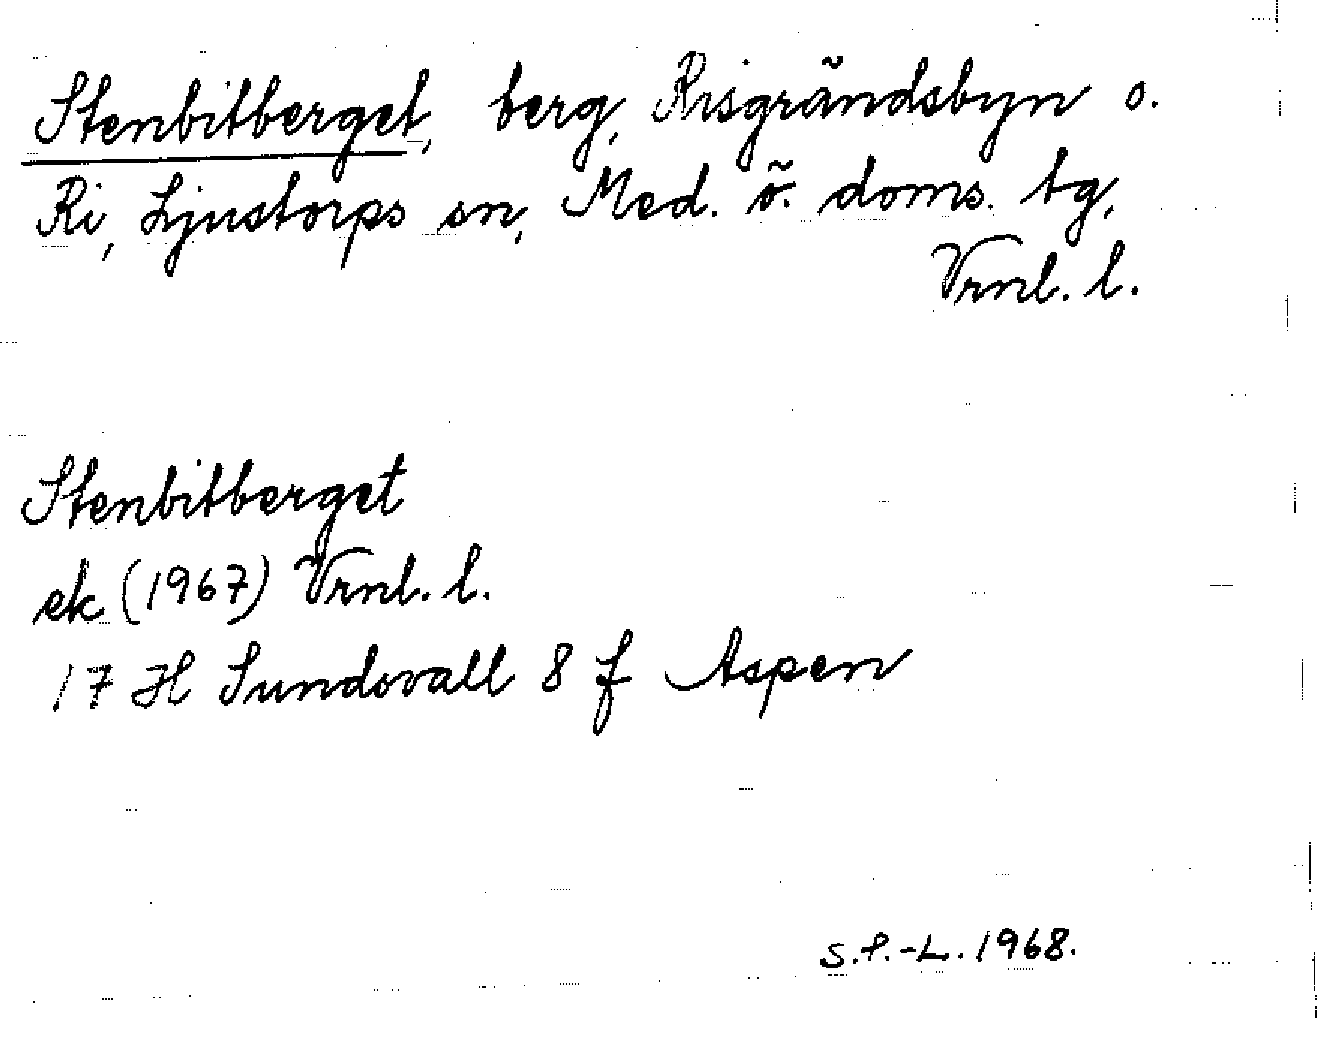 Stenbitberget, berg, Risgrändsbyn o.
Ri, Ljustorps sn, Med. ö. doms. tg,
Vrnl. l.
Stenbitberget
ek (1967) Vrnl. l.
17 H Sundsvall 8 f Aspen
S.P.-L. 1968.